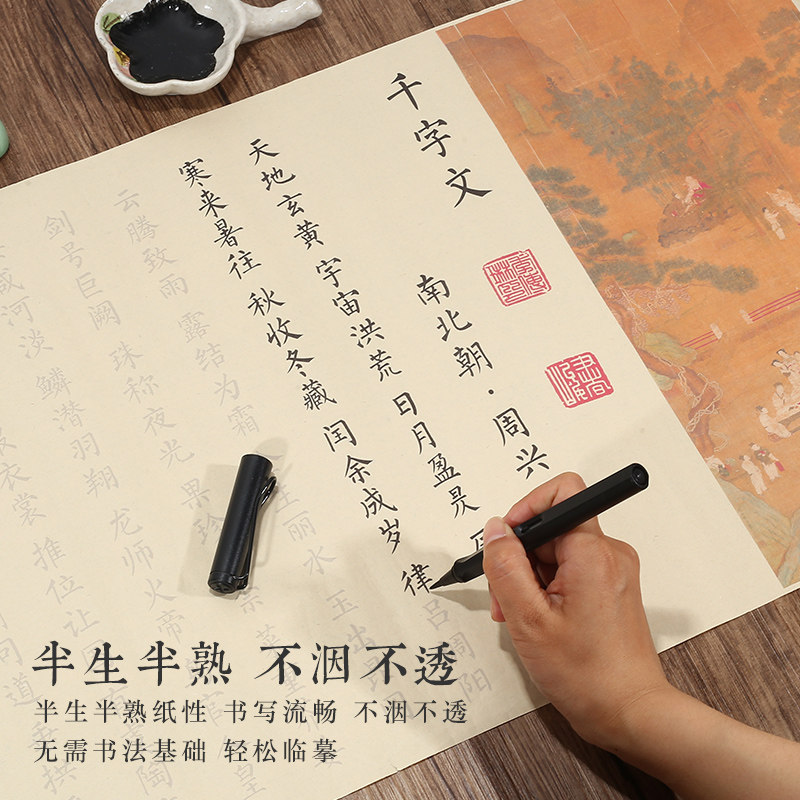 千字文
南北朝·周兴
天地玄黄 宇宙洪荒 日月盈昃
寒来暑往 秋收冬藏 闰余成岁 律吕调阳
云腾致雨 露结为霜 生丽水 玉出
剑号巨阙 珠称夜光 果珍 柰 菜
咸河淡 鳞潜羽翔 龙师火帝 官 皇
衣裳 推位让 陶
问道
半生半熟 不洇不透
半生半熟纸性 书写流畅 不洇不透
无需书法基础 轻松临摹